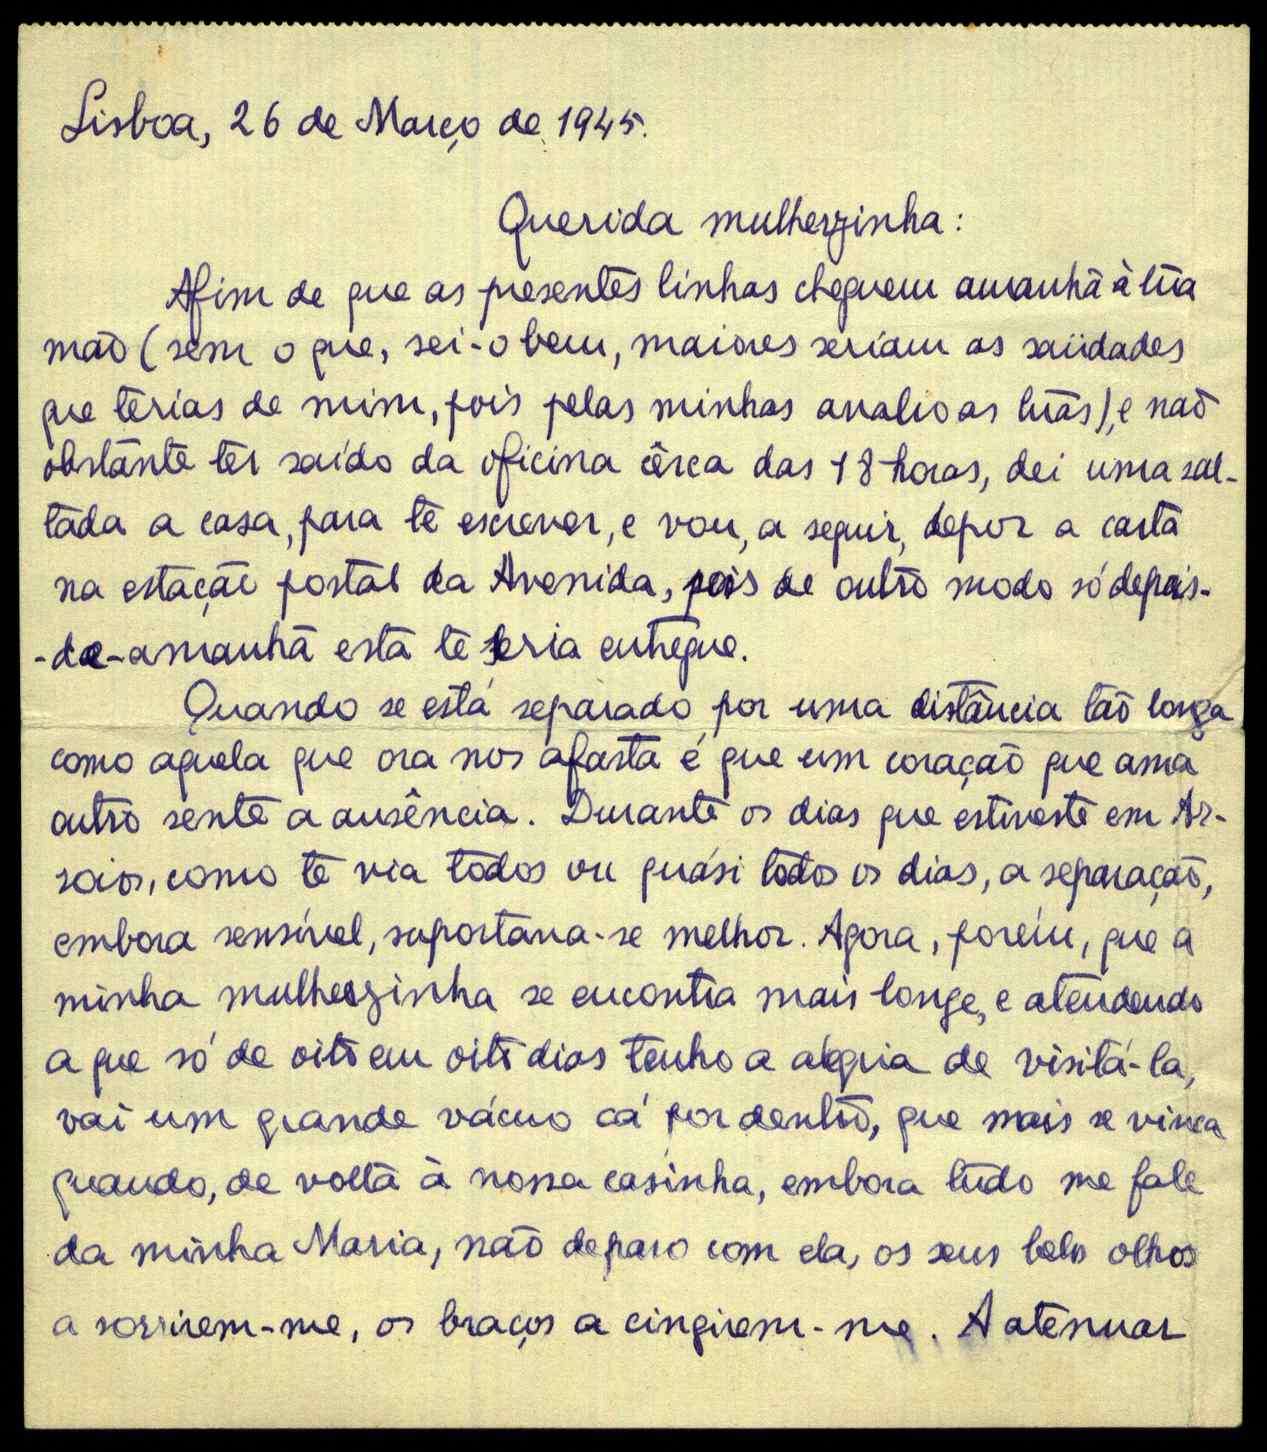 Lisboa, 26 de Março de 1945.
Querida mulherzinha:
Afim de que as presentes linhas cheguem amanhã à tua
mão (sem o que, sei-o bem, maiores seriam as saüdades
que terias de mim, pois pelas minhas avalio as tuas), e não
obstante ter saído da oficina cêrca das 18 horas, dei uma sal-
tada a casa, para te escrever, e vou, a seguir, depor a carta
na estação postal da Avenida, pois de outro modo só depois-
-de-amanhã esta te seria entregue.
Quando se está separado por uma distância tão longa
como aquela que ora nos afasta é que um coração que ama
outro sente a ausência. Durante os dias que estiveste em Ar-
roios, como te via todos ou quási todos os dias, a separação,
embora sensível, suportava-se melhor. Agora, porém, que a
minha mulherzinha se encontra mais longe, e atendendo
a que só de oito em oito dias tenho a alegria de visitá-la,
vai um grande vácuo cá por dentro, que mais se vinca
quando, de volta à nossa casinha, embora tudo me fale
da minha Maria, não deparo com ela, os seus belos olhos
a sorrirem-me, os braços a cingirem-me. A atenuar